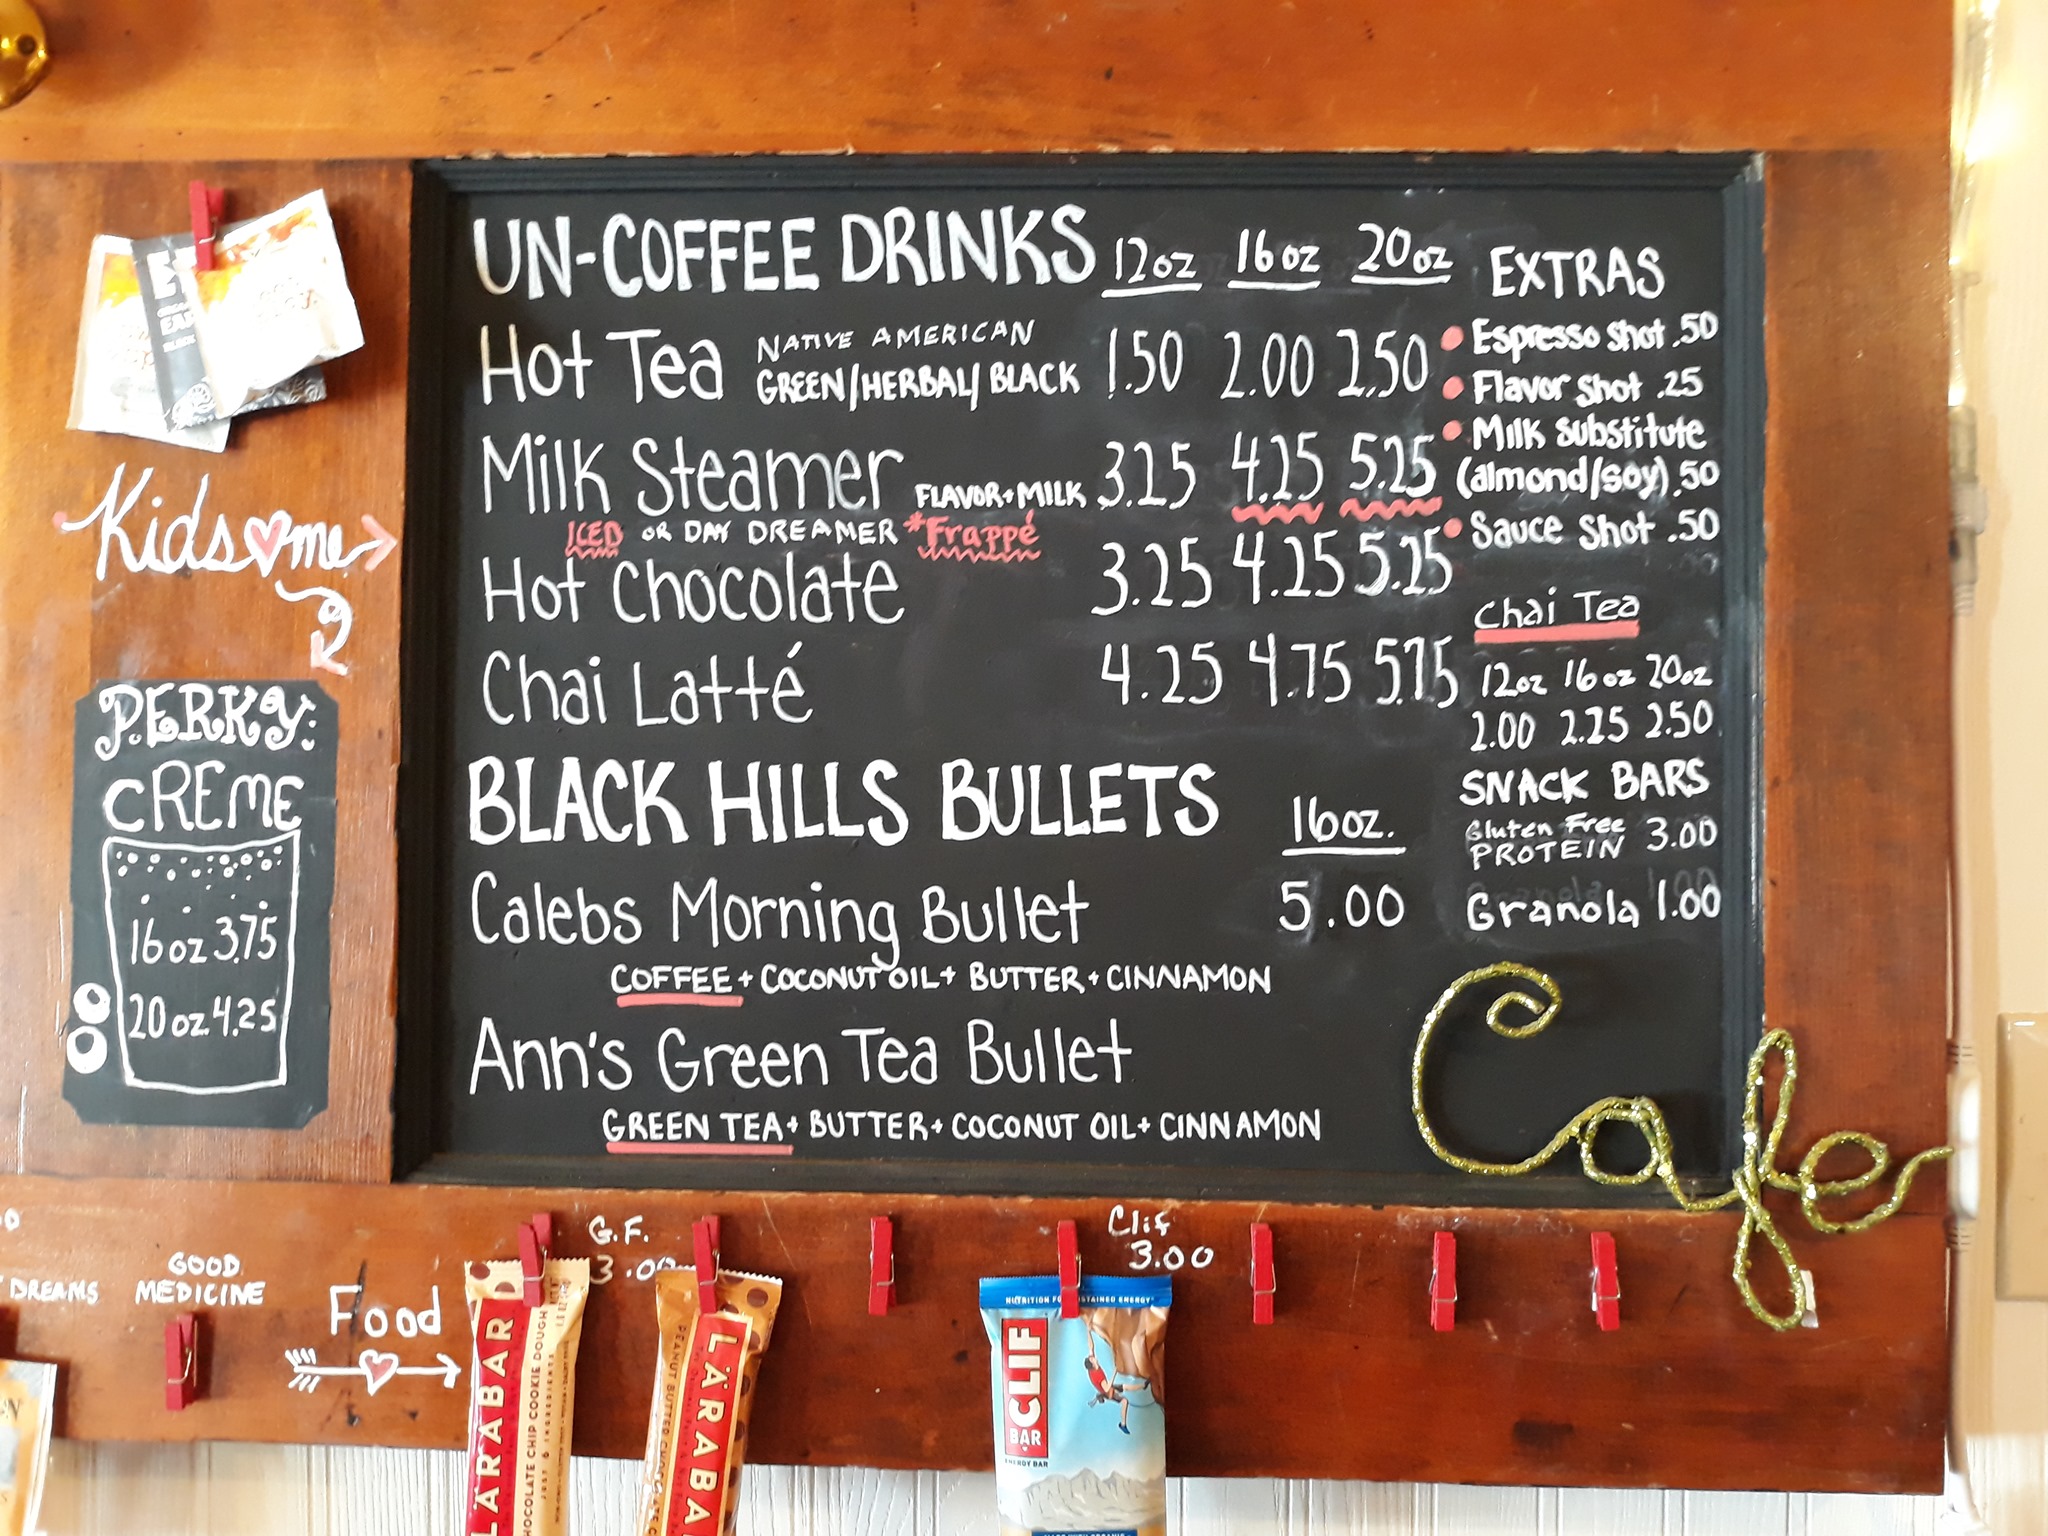 UN-COFFEE DRINKS 12oz 16oz 20oz
Hot Tea NATIVE AMERICAN
GREEN/HERBAL/BLACK 1.50 2.00 2.50
Milk Steamer FLAVOR+MILK 3.25 4.25 5.25
ICED OR DAY DREAMER *Frappé
Hot Chocolate 3.25 4.25 5.25
Chai Latté 4.25 4.75 5.75
BLACK HILLS BULLETS 16oz.
Calebs Morning Bullet 5.00
COFFEE + COCONUT OIL + BUTTER + CINNAMON
Ann's Green Tea Bullet
GREEN TEA + BUTTER + COCONUT OIL + CINNAMON
EXTRAS
Espresso shot .50
Flavor shot .25
Milk substitute
(almond/soy) .50
Sauce shot .50
Chai Tea
12oz 16oz 20oz
2.00 2.25 2.50
SNACK BARS
Gluten Free
PROTEIN 3.00
Granola 1.00
Cafe
Kids me
PERKY:
CREME
16oz 3.75
20oz. 4.25
DREAMS
GOOD
MEDICINE
Food
G.F.
3.00
Clif
3.00
LÄRABAR
CHOCOLATE CHIP COOKIE DOUGH
JUST 6 INGREDIENTS
LÄRABA
PEANUT BUTTER
NUTRITION FOR SUSTAINED ENERGY
CLIF
BAR
ENERGY BAR